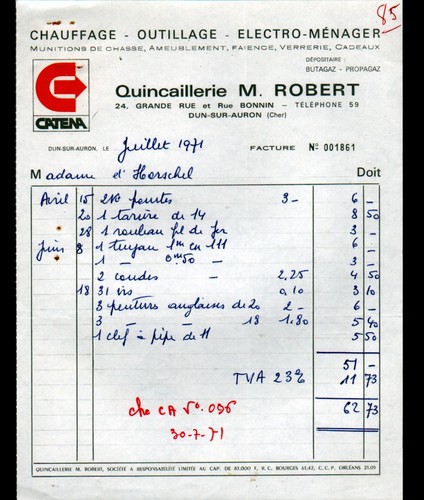 85
CHAUFFAGE - OUTILLAGE - ELECTRO-MÉNAGER
MUNITIONS DE CHASSE, AMEUBLEMENT, FAIENCE, VERRERIE, CADEAUX
DÉPOSITAIRE :
BUTAGAZ - PROPAGAZ
CATENA
Quincaillerie M. ROBERT
24, GRANDE RUE et Rue BONNIN — TÉLÉPHONE 59
DUN-SUR-AURON (Cher)
DUN-SUR-AURON, LE Juillet 1971 FACTURE N° 001861
Madame d'Herschel Doit
Avril 15 2KG pointes 3- 6 -
20 1 tarière de 14 8 50
28 1 rouleau fil de fer 3 -
Juin 8 1 tuyau 1m en 111 6 -
1 - 0m50 - 3 -
2 coudes - 2,25 4 50
18 31 vis 0,10 3 10
3 pentures anglaises de 20 2- 6 -
3 - 18 1.80 5 40
1 clef à pipe de 11 5 50
51 -
TVA 23% 11 73
62 73
che CA N°. 096
30-7-71
QUINCAILLERIE M. ROBERT, SOCIÉTÉ A RESPONSABILITÉ LIMITÉE AU CAP. DE F, R.C. BOURGES 61.42, C.C.P. ORLÉANS 21.09